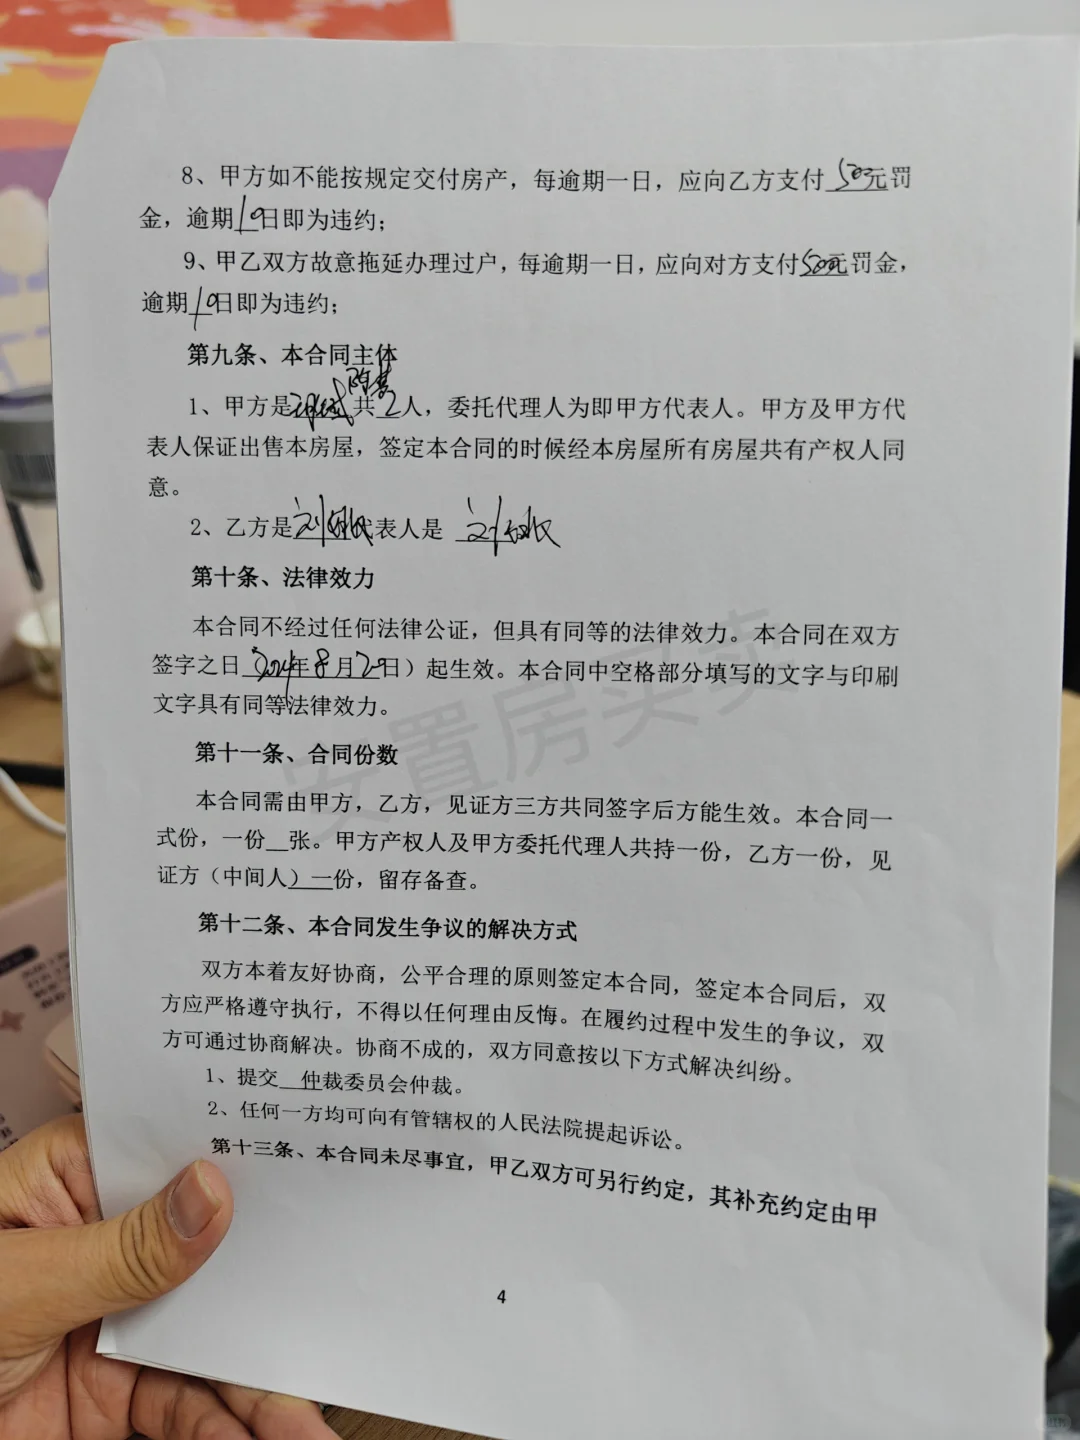 8、甲方如不能按规定交付房产，每逾期一日，应向乙方支付500元罚
金，逾期10日即为违约；
9、甲乙双方故意拖延办理过户，每逾期一日，应向对方支付500元罚金，
逾期10日即为违约；
第九条、本合同主体
1、甲方是 共2人，委托代理人为即甲方代表人。甲方及甲方代
表人保证出售本房屋，签定本合同的时候经本房屋所有房屋共有产权人同
意。
2、乙方是刘 代表人是 刘
第十条、法律效力
本合同不经过任何法律公证，但具有同等的法律效力。本合同在双方
签字之日2024年8月20日）起生效。本合同中空格部分填写的文字与印刷
文字具有同等法律效力。
安置房买卖
第十一条、合同份数
本合同需由甲方，乙方，见证方三方共同签字后方能生效。本合同一
式份，一份__张。甲方产权人及甲方委托代理人共持一份，乙方一份，见
证方（中间人）一份，留存备查。
第十二条、本合同发生争议的解决方式
双方本着友好协商，公平合理的原则签定本合同，签定本合同后，双
方应严格遵守执行，不得以任何理由反悔。在履约过程中发生的争议，双
方可通过协商解决。协商不成的，双方同意按以下方式解决纠纷。
1、提交__仲裁委员会仲裁。
2、任何一方均可向有管辖权的人民法院提起诉讼。
第十三条、本合同未尽事宜，甲乙双方可另行约定，其补充约定由甲
4